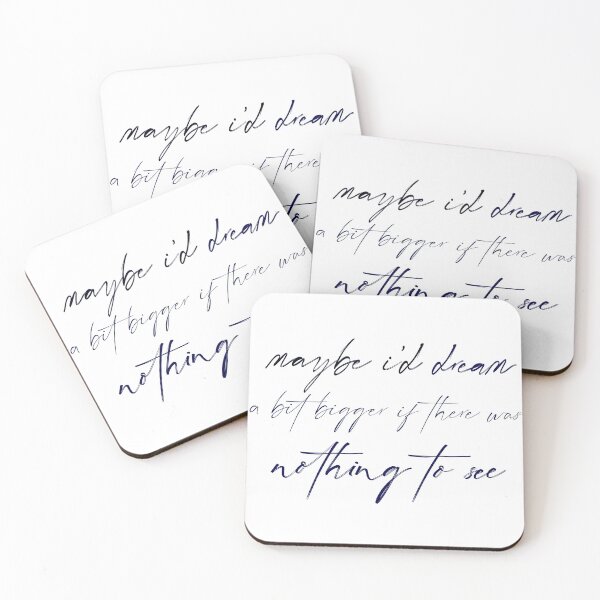 maybe i'd dream
a bit bigger if there
to
maybe i'd dream
a bit bigger if there was
nothing to see
maybe i'd dream
a bit bigger if there was
nothing
maybe i'd dream
a bit bigger if there was
nothing to see